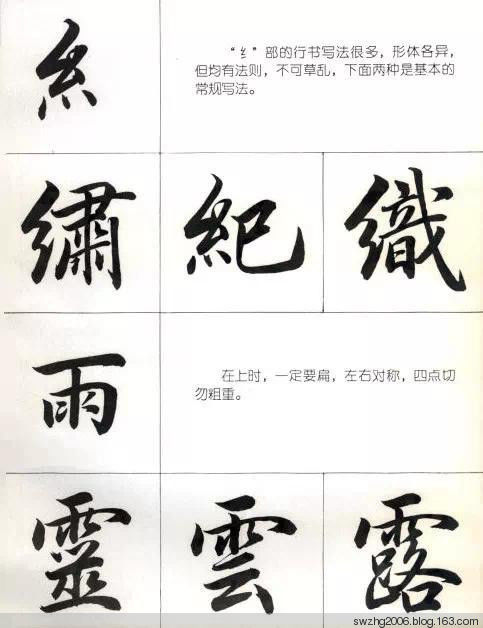 糹
"纟"部的行书写法很多，形体各异，
但均有法则，不可草乱，下面两种是基本的
常规写法。
繡 紀 織
雨
在上时，一定要扁，左右对称，四点切
勿粗重。
靈 雲 露
swzhg2006.blog.163.com